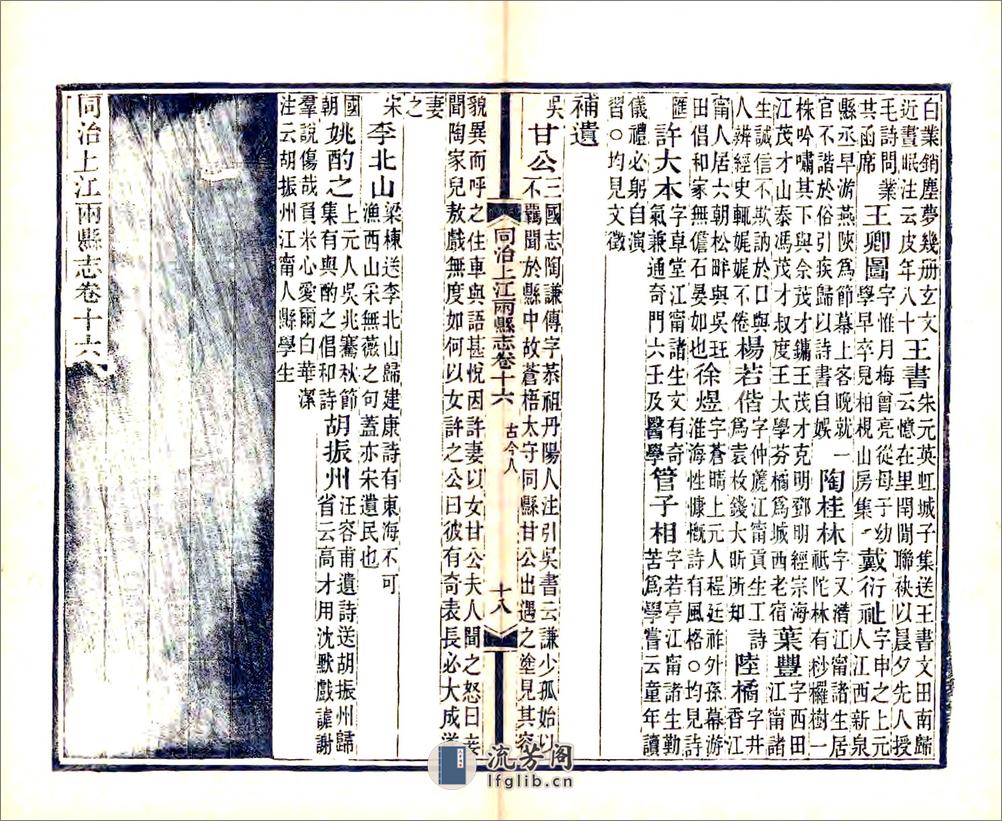 白業銷塵夢幾册玄文
近晝眠注云皮年八十
王書
朱元英虹城子集送王書文田南歸
云憶在里閈閒聯袂以晨夕先人授
毛詩問業
其函席
王卿圖
字惟月梅曾亮從母子幼
學早卒見柏梘山房集
戴衍祉
字申之上元
人江西新泉
縣丞早游燕陝爲節幕上客晚就一
官不諧於俗引疾歸以詩書自娛
陶桂林
字又濳江甯諸生居
祗陀林有秒欏樹一
株吟嘯其下與余茂才鏞王茂才克明鄧明經宗海
江茂才山泰馮茂才叔度王太學芬橘爲城西老宿
葉豐
字西田
江甯諸
生誠信不欺訥於口與
人辨經史輒娓娓不倦
楊若偕
字仲蘆江甯貢生工詩
爲袁枚錢大昕所知
陸橘
字井
香江
甯人居六朝松畔與吳玨
田倡和家無儋石晏如也
徐煜
字蒼晴上元人程廷祚外孫幕游
淮海性慷慨詩有風格○均見詩
匯
許大本
字卓堂江甯諸生文有奇
氣兼通奇門六壬及醫學
管子相
字若亭江甯諸生勤
苦爲學嘗云童年讀
儀禮必躬自演
習○均見文徵
補遺
吳
甘公
三國志陶謙傳字恭祖丹陽人注引吳書云謙少孤始以
不羈聞於縣中故蒼梧太守同縣甘公出遇之塗見其容
同治上江兩縣志卷十六
古今人
十八
貌異而呼之住車與語甚悅因許妻以女甘公夫人聞之怒曰妾
聞陶家兒敖戲無度如何以女許之公曰彼有奇表長必大成遂
妻
之
宋
李北山
梁棟送李北山歸建康詩有東海不可
漁西山采無薇之句蓋亦宋遺民也
國
朝
姚酌之
上元人吳兆騫秋節
集有與酌之倡和詩
胡振州
汪容甫遺詩送胡振州歸
省云高才用沈默戲謔謝
羣說傷哉負米心愛爾白華潔
注云胡振州江甯人縣學生
同治上江兩縣志卷十六
流芳阁
lfglib.cn